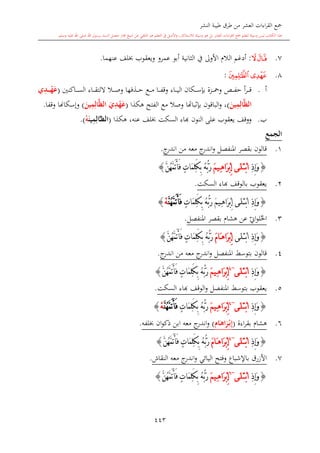 جمع القراءات العشر من طرق طيبة النشر
٧. قَالَ لَا: أدغم اللام الأولى في الثانية أبو عمرو ويعقوب بخلف عنهما.
٨. عَهْدِى ٱلظَّٰلِمِينَ:
أ . قرأ حفص وحمزة بإسكان الياء وقفا مع حذفها وصلا لالتقاء الساكنين (عَهْدِى
ٱلظَّٰلِمِينَ)، والباقون بإثباتها وصلا مع الفتح هكذا (عَهْدِىَ ٱلظَّٰلِمِينَ) وإسكانها وقفا.
ب. ووقف يعقوب على النون بهاء السكت بخلف عنه، هكذا (ٱلظَّٰلِمِينَهْ).
الجمع
١. قالون بقصر المنفصل واندرج معه من اندرج.
﴿ وَإِذِ ٱبْتَلَىٰٓ إِبْرَٰهِـۧمَ رَبُّهُۥ بِكَلِمَٰتٍ فَأَتَمَّهُنَّ ﴾
٢. يعقوب بالوقف بهاء السكت.
﴿ وَإِذِ ٱبْتَلَىٰٓ إِبْرَٰهِـۧمَ رَبُّهُۥ بِكَلِمَٰتٍ فَأَتَمَّهُنَّهْ ﴾
٣. الحلواني عن هشام بقصر المنفصل.
﴿ وَإِذِ ٱبْتَلَىٰٓ إِبْرَاهَامَ رَبُّهُۥ بِكَلِمَٰتٍ فَأَتَمَّهُنَّ ﴾
٤. قالون بتوسط المنفصل واندرج معه من اندرج.
﴿ وَإِذِ ٱبْتَلَىٰٓ إِبْرَٰهِـۧمَ رَبُّهُۥ بِكَلِمَٰتٍ فَأَتَمَّهُنَّ ﴾
٥. يعقوب بتوسط المنفصل والوقف بهاء السكت.
﴿ وَإِذِ ٱبْتَلَىٰٓ إِبْرَٰهِـۧمَ رَبُّهُۥ بِكَلِمَٰتٍ فَأَتَمَّهُنَّهْ ﴾
٦. هشام بقراءة (إِبْرَاهَامَ) واندرج معه ابن ذكوان بخلفه.
﴿ وَإِذِ ٱبْتَلَىٰٓ إِبْرَاهَامَ رَبُّهُۥ بِكَلِمَٰتٍ فَأَتَمَّهُنَّ ﴾
٧. الأزرق بالإشباع وفتح اليائي واندرج معه النقاش.
﴿ وَإِذِ ٱبْتَلَىٰٓ إِبْرَٰهِـۧمَ رَبُّهُۥ بِكَلِمَٰتٍ فَأَتَمَّهُنَّ ﴾
٤٤٣